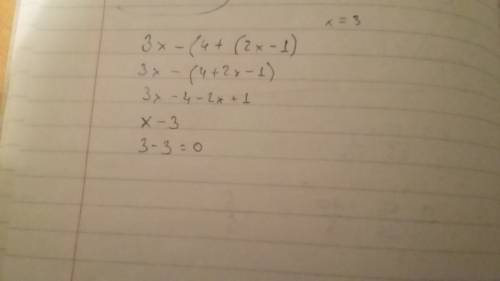 x = 3
3x - (4 + (2x - 1)
3x - (4 + 2x - 1)
3x - 4 - 2x + 1
x - 3
3 - 3 = 0